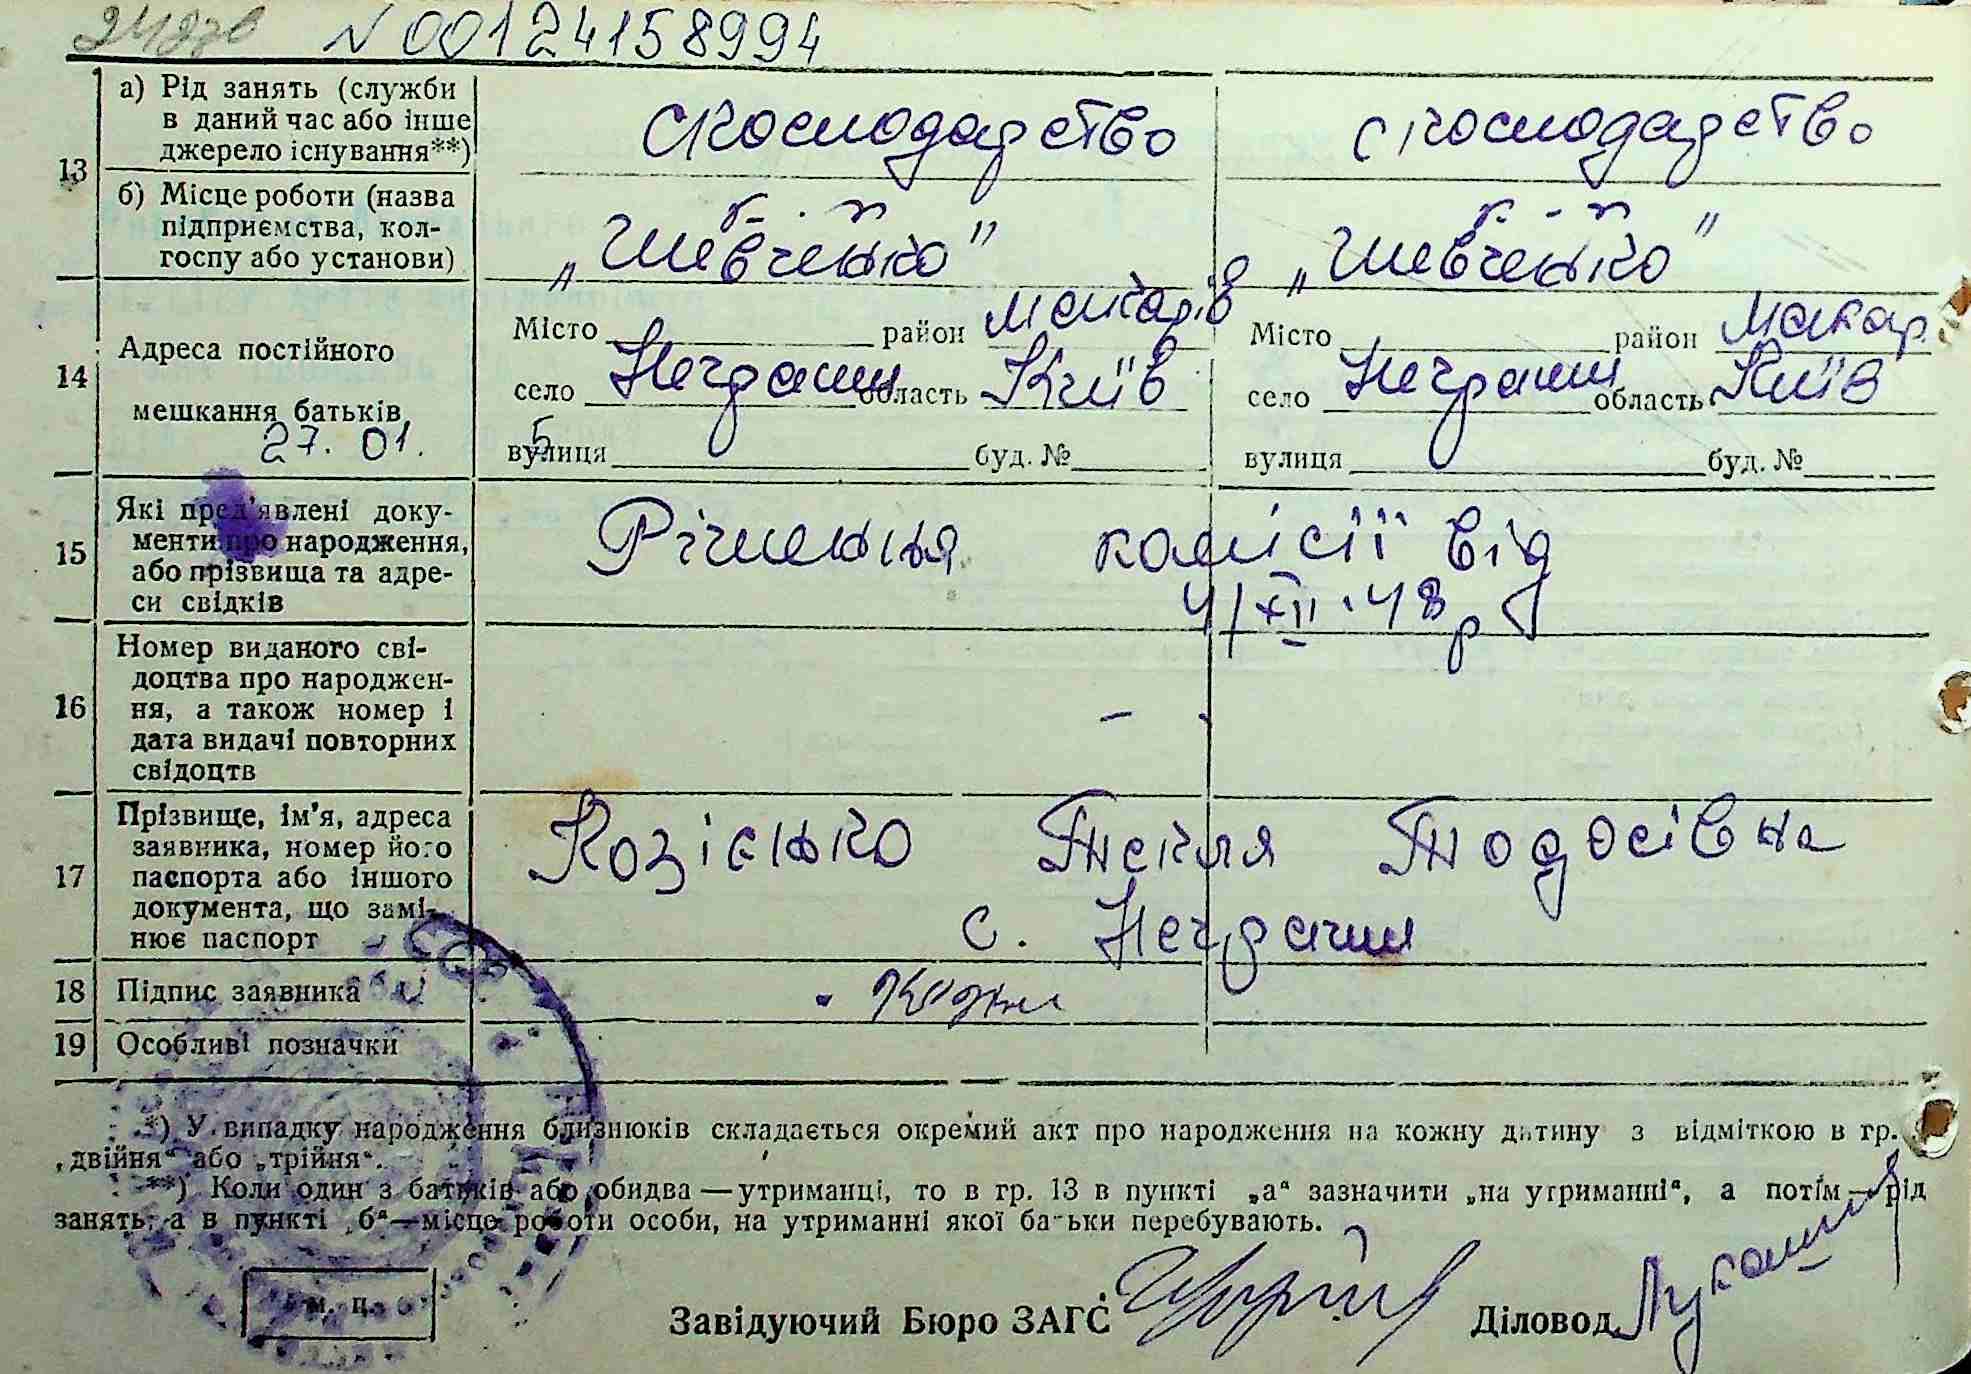 N 00124158994
13
а) Рід занять (служби в даний час або інше джерело існування**)
с господарство
с господарство
б) Місце роботи (назва підприємства, колгоспу або установи)
к-п
„Шевченко"
к-п
„Шевченко"
14
Адреса постійного мешкання батьків
27. 01.
Місто район Макарів
село Неграши область Київ
5
вулиця буд. №
Місто район Макар.
село Неграши область Київ
вулиця буд. №
15
Які пред'явлені документи про народження, або прізвища та адреси свідків
Рішення комісії від
4/XII-48 р
16
Номер виданого свідоцтва про народження, а також номер і дата видачі повторних свідоцтв
–
17
Прізвище, ім'я, адреса заявника, номер його паспорта або іншого документа, що замінює паспорт
Козієнко Текля Тодосівна
с. Неграши
18
Підпис заявника
19
Особливі позначки
*) У випадку народження близнюків складається окремий акт про народження на кожну дитину з відміткою в гр.
„двійня" або „трійня".
**) Коли один з батьків або обидва — утриманці, то в гр. 13 в пункті „а" зазначити „на утриманні", а потім — рід
занять, а в пункті „б" — місце роботи особи, на утриманні якої батьки перебувають.
м. п.
Завідуючий Бюро ЗАГС
Діловод